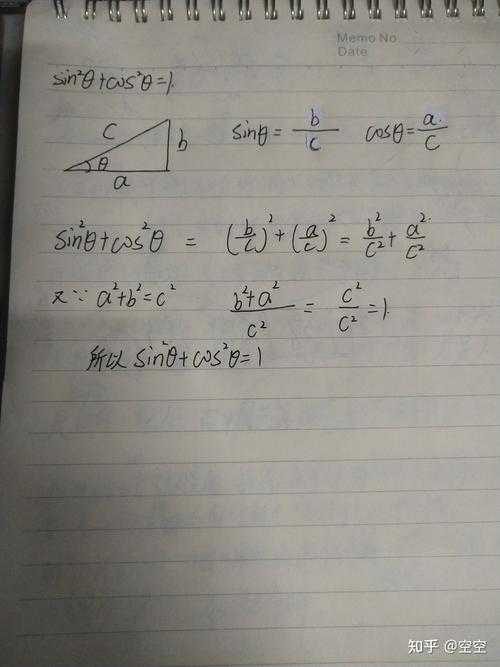 Memo No
Date
sin²θ+cos²θ=1
c b θ a
sinθ = b/c cosθ = a/c
sin²θ+cos²θ = (b/c)²+(a/c)² = b²/c²+a²/c²
又∵ a²+b²=c² (b²+a²)/c² = c²/c² = 1
所以 sin²θ+cos²θ=1
知乎 @空空